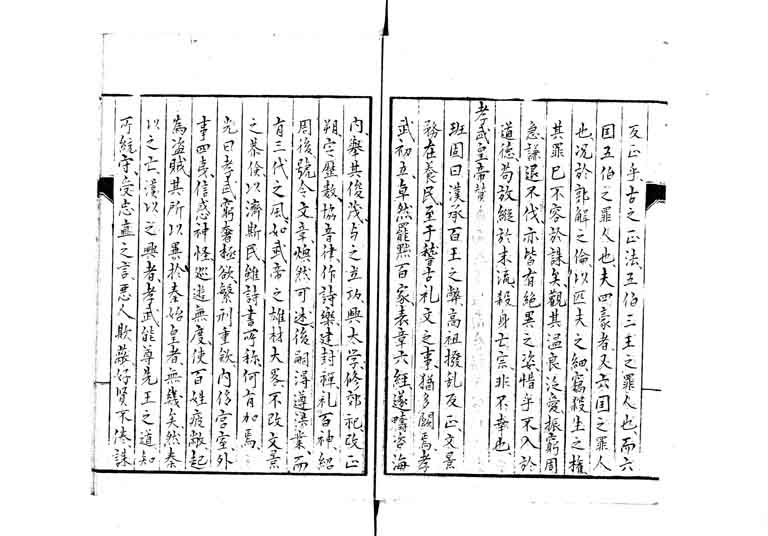 反正乎古之正法五伯三王之罪人也而六
国五伯之罪人也夫四豪者又六国之罪人
也况於郭解之倫以匹夫之細窃殺生之権
其罪已不容於誅矣観其温良泛愛振窮周
急謙退不伐亦皆有絶異之姿惜乎不入於
道徳苟放縦於末流殺身亡宗非不幸也
孝武皇帝賛
班固曰漢承百王之弊高祖撥乱反正文景
務在養民至于稽古礼文之事猶多闕焉孝
武初立卓然罷黜百家表章六経遂疇咨海
内挙其俊茂与之立功興太学修郊祀改正
朔定暦数協音律作詩楽建封禅礼百神紹
周後號令文章煥然可述後嗣得遵洪業而
有三代之風如武帝之雄材大畧不改文景
之恭倹以濟斯民雖詩書所称何有加焉
光曰孝武窮奢極欲繁刑重歛内侈宮室外
事四夷信惑神怪巡遊無度使百姓疲敝起
為盗賊其所以異於秦始皇者無幾矣然秦
以之亡漢以之興者孝武能尊先王之道知
所統守受忠直之言悪人欺蔽好賢不倦誅